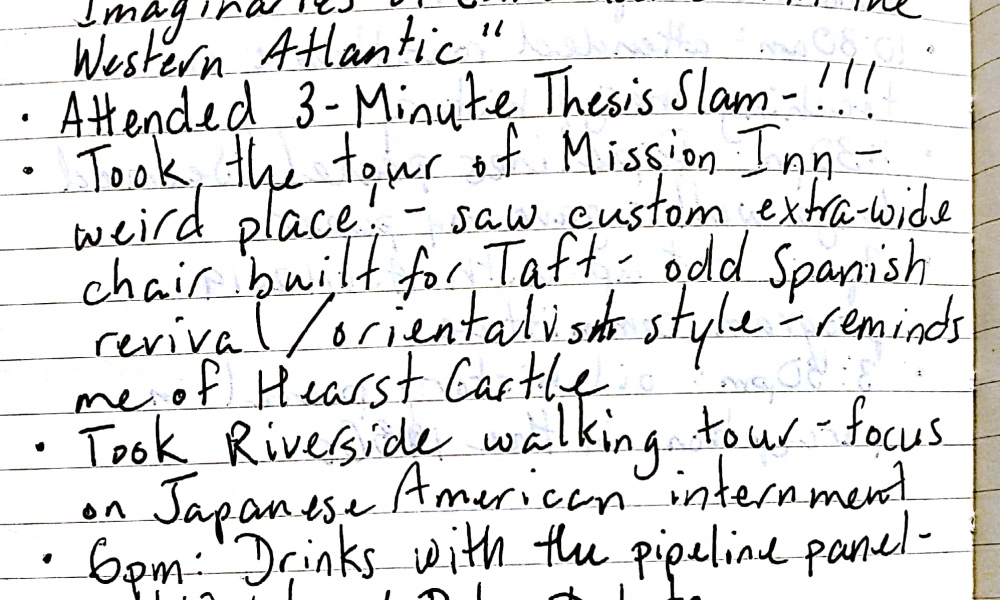 Imaginaries of in the
Western Atlantic"
• Attended 3-Minute Thesis Slam-!!!
• Took the tour of Mission Inn -
weird place! - saw custom extra-wide
chair built for Taft - odd Spanish
revival/orientalist style - reminds
me of Hearst Castle
• Took Riverside walking tour - focus
on Japanese American internment
• 6pm: Drinks with the pipeline panel-